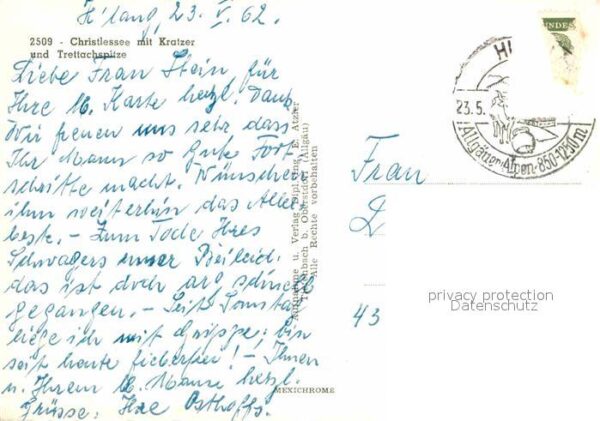 H'lang, 23. V. 62.
2509 - Christlessee mit Kratzer
und Trettachspitze
Liebe Frau Stein, für
Ihre lb. Karte herzl. Dank.
Wir freuen uns sehr, dass
Ihr Mann so gute Fort-
schritte macht. Wünschen
ihm weiterhin das Aller-
beste. - Zum Tode Ihres
Schwagers unser Beileid,
das ist doch arg schnell
gegangen. - Seit Sonntag
liege ich mit Grippe; bin
seit heute fieberfrei! - Ihnen
u. Ihrem lb. Manne herzl.
Grüsse, Ihre Osthoffs.
MEXICHROME
Aufnahme u. Verlag Dipl.-Ing. E. Atzler
b. Oberstdorf (Allgäu)
Alle Rechte vorbehalten
UNDES
23.5.
Allgäuer-Alpen-850-1250m
Frau
43
privacy protection
Datenschutz